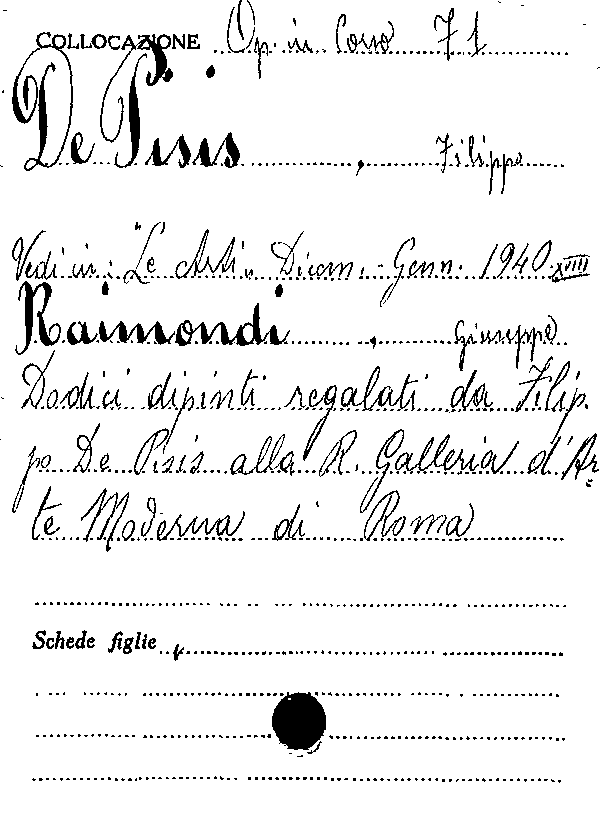 COLLOCAZIONE Op. in Corso 71
De Pisis, Filippo
Vedi in: "Le Arti" Dicem.-Genn. 1940. XVIII
Raimondi, Giuseppe
Dodici dipinti regalati da Filip-
po De Pisis alla R. Galleria d'Ar-
te Moderna di Roma
Schede figlie